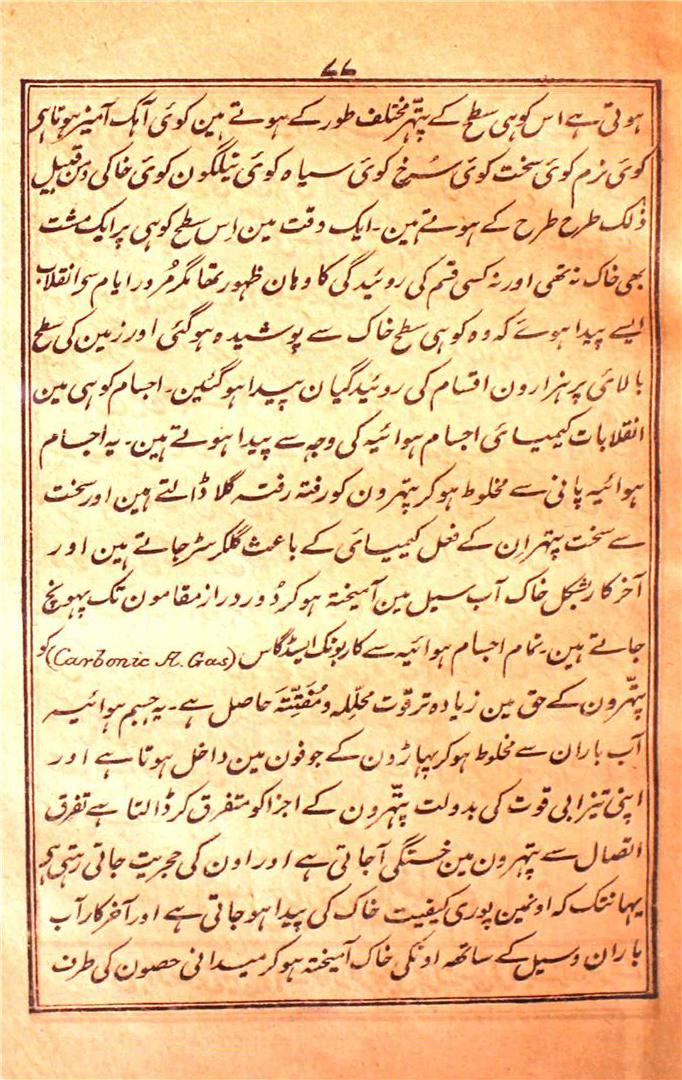 ۷۷
ہوتی ہے اس کوہی سطح کے پتہر مختلف طور کے ہوتے ہین کوئی آہک آمیز ہوتا ہی
کوئی نرم کوئی سخت کوئی سُرخ کوئی سیاہ کوئی نیلگون کوئی خاکی ومن قبیل
ذٰلک طرح طرح کے ہوتے ہین۔ ایک وقت مین اِس سطح کوہی پر ایک مشت
بھی خاک نہ تھی اور نہ کسی قسم کی روئیدگی کا وہان ظہور تھا مگر مُرور ایام سی انقلاب
ایسے پیدا ہوئے کہ وہ کوہی سطح خاک سے پوشیدہ ہوگئی اور زمین کی سطح
بالائی پر ہزارون اقسام کی روئیدگیان پیدا ہوگئین۔ اجسام کوہی مین
انقلابات کیمیائی اجسام ہوائیہ کی وجہ سے پیدا ہوتے ہین۔ یہ اجسام
ہوائیہ پانی سے مخلوط ہوکر پتہرون کو رفتہ رفتہ گلا ڈالتے ہین اور سخت
سے سخت پتہر ان کے فعل کیمیائی کے باعث گلکر سٹر جاتے ہین اور
آخر کار بشکل خاک آب سیل مین آمیختہ ہوکر دُور دراز مقامون تک پہونچ
جاتے ہین۔ تمام اجسام ہوائیہ سے کاربونک ایسڈ گاس (Carbonic A. Gas) کو
پتہّرون کے حق مین زیادہ تر قوت محلِّلہ و مُفَتِّتَہ حاصل ہے۔ یہ جسم ہوائیہ
آب باران سے مخلوط ہوکر پہاڑون کے جوفون مین داخل ہوتا ہے اور
اپنی تیزابی قوت کی بدولت پتہّرون کے اجزا کو متفرق کر ڈالتا ہے تفرق
اتصال سے پتہرون مین خستگی آجاتی ہے اور اون کی حجریت جاتی رہتی ہی
یہانتک کہ اونمین پوری کیفیت خاک کی پیدا ہوجاتی ہے اور آخر کار آب
باران وسیل کے ساتھہ اونکی خاک آمیختہ ہوکر میدانی حصون کی طرف